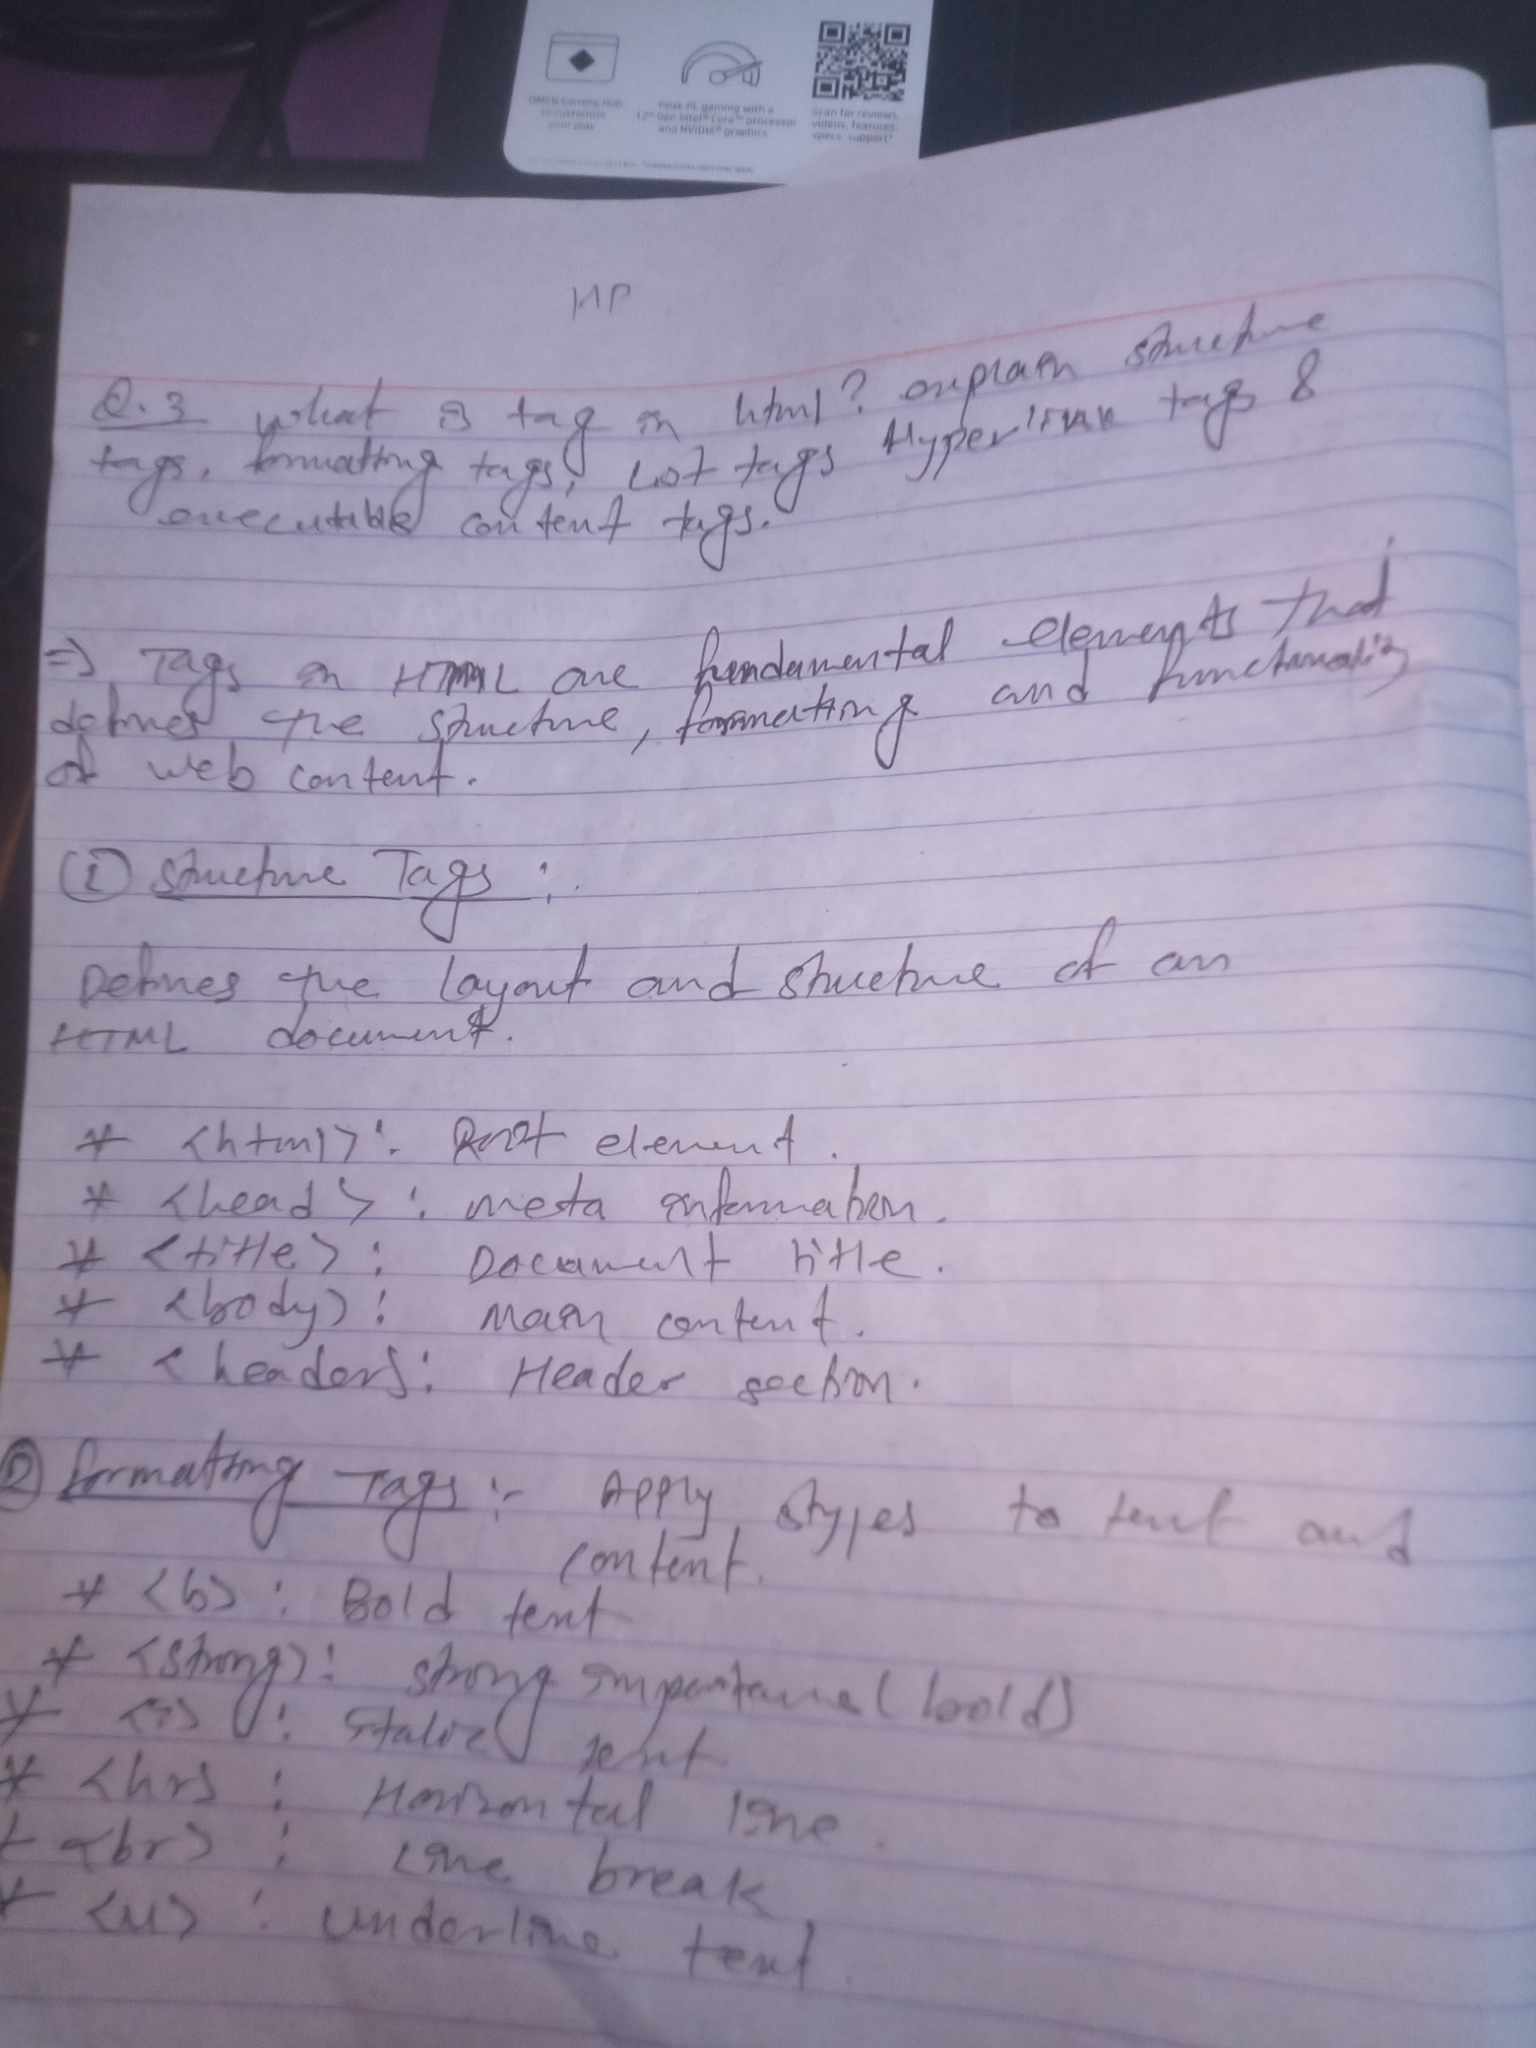 OMEN Gaming Hub
to customize
your play
Peak PC gaming with a
12th Gen Intel® Core™ processor
and NVIDIA® graphics
Scan for reviews,
videos, features,
specs, support*
MP
Q.3 what is tag in html? explain structure
tags, formatting tags, List tags Hyperlink tags &
executable content tags.
=> Tags in HTML are fundamental elements that
defines the structure, formatting and functionality
of web content.
(1) Structure Tags :
Defines the layout and structure of an
HTML document.
* <html> : Root element.
* <head> : meta information.
* <title> : Document title.
* <body> : Main content.
* <header> : Header section.
(2) Formatting Tags :- Apply styles to text and
content.
* <b> : Bold text
* <strong> : strong importance (bold)
* <i> : italic text
* <hr> : Horizontal line.
* <br> : Line break
* <u> : underline text.